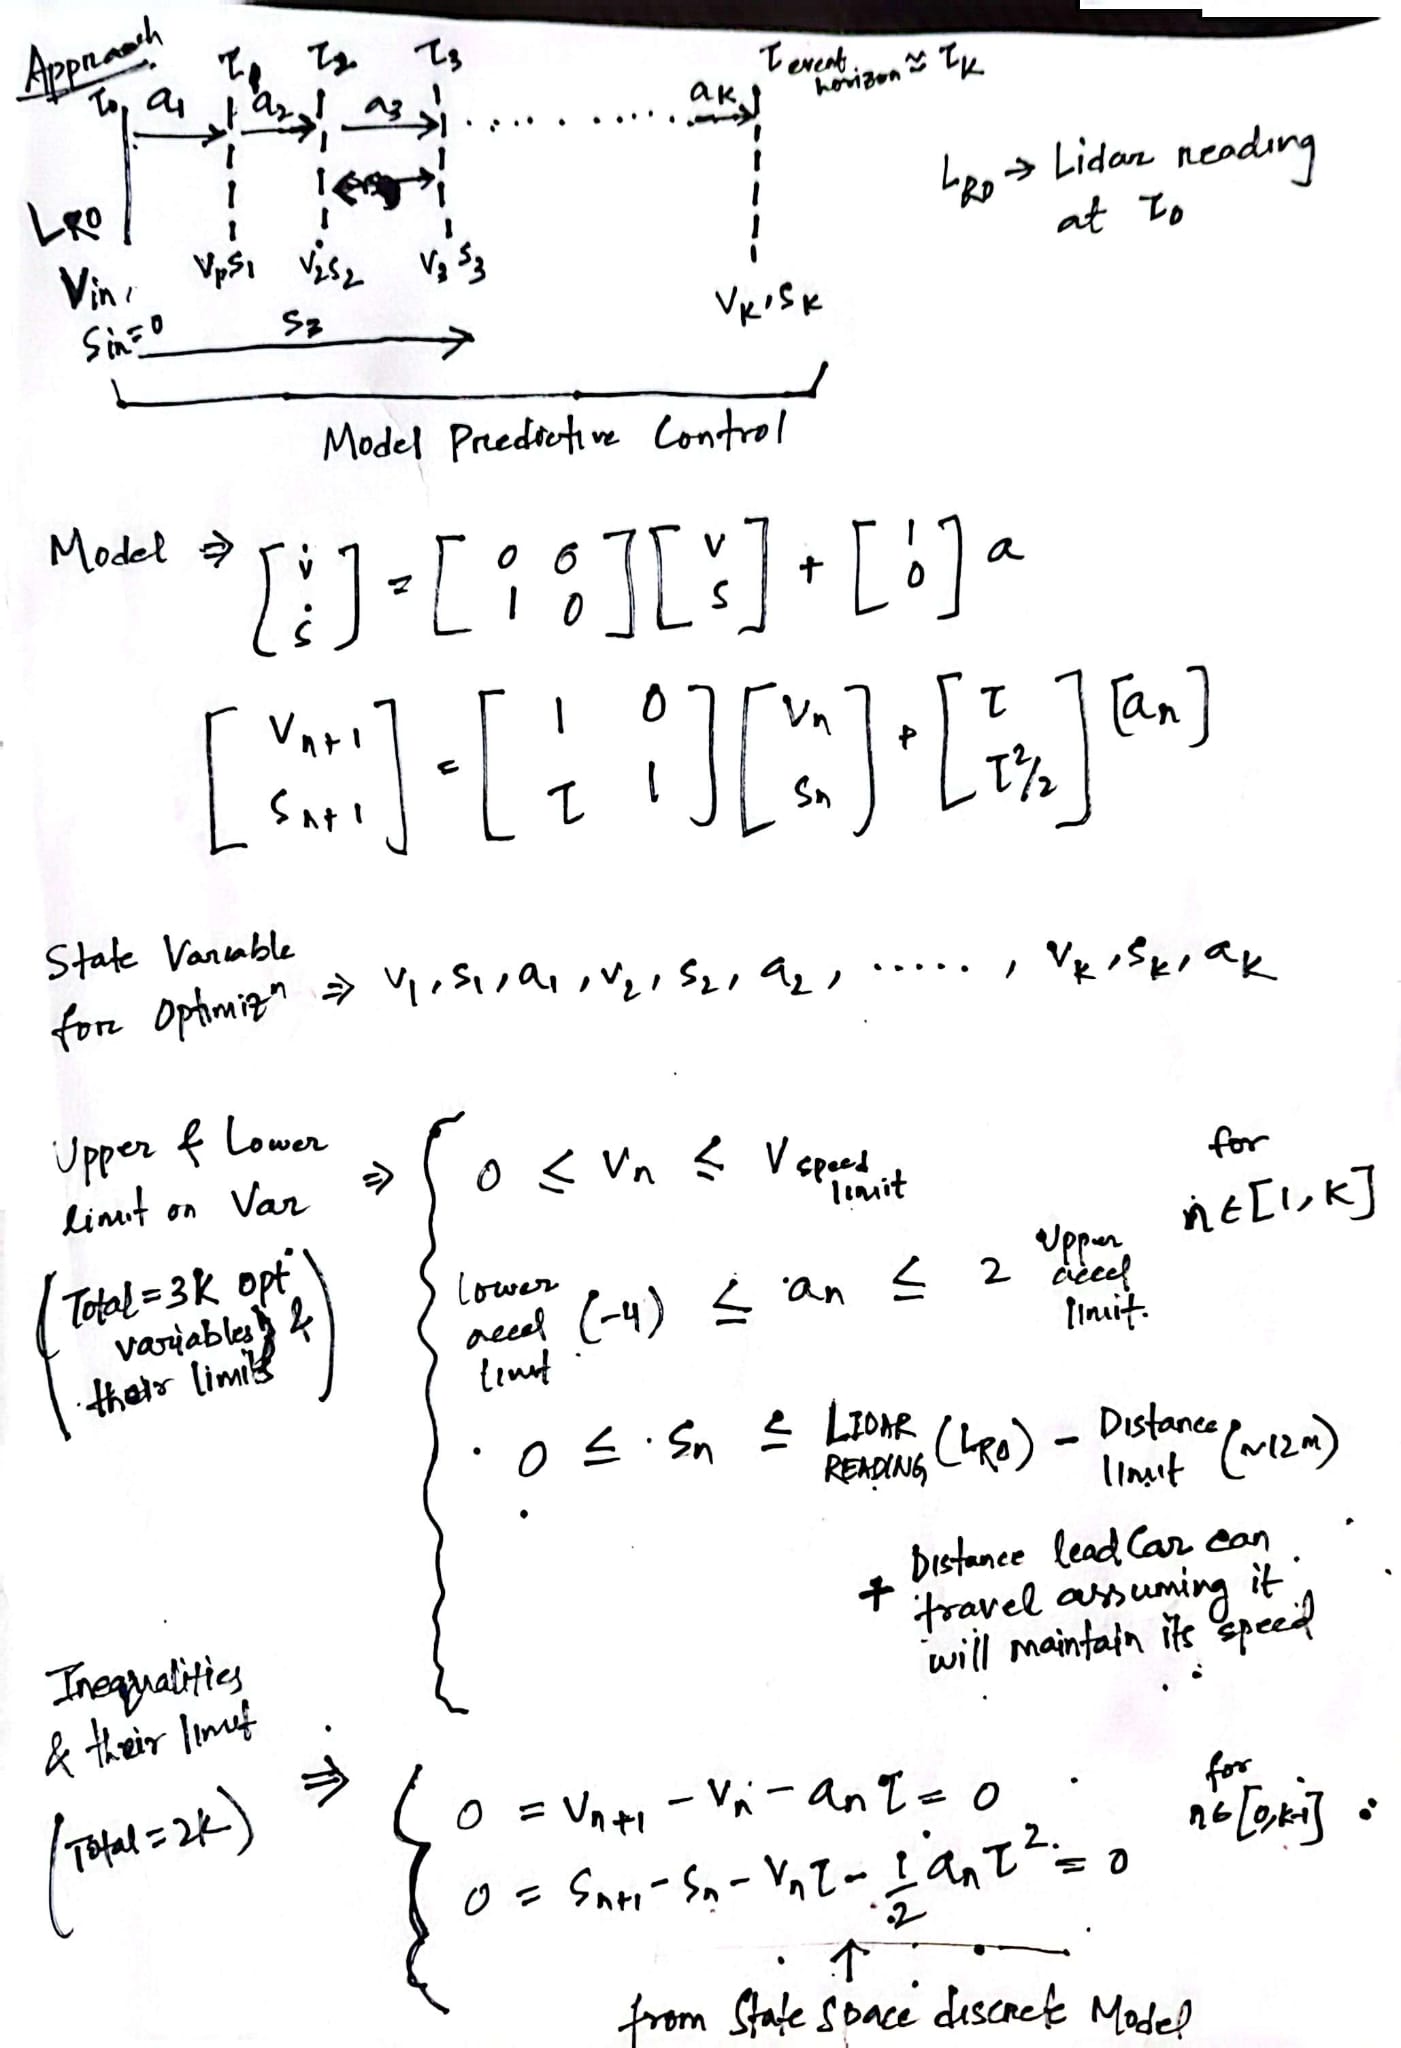 Approach
τ0 a1 τ1 a2 τ2 a3 τ3 ............ aK τevent horizon ≈ τK
LR0 → Lidar reading
at τ0
LR0
Vin,
Sin=0
V1,S1 V2S2 V3 S3 VK,SK
S3
Model Predictive Control
Model ⇒ [v̇ ṡ] = [0 0 1 0] [v s] + [1 0] a
[Vn+1 Sn+1] = [1 0 τ 1] [Vn Sn] + [τ τ²/2] [an]
State Variable
for Optimizn ⇒ V1, S1, a1, V2, S2, a2, ....., VK, SK, aK
Upper & Lower
limit on Var ⇒
(Total = 3K opt
variables &
their limits)
0 ≤ Vn ≤ V speed limit
for
n ∈ [1, K]
Lower accel limit (-4) ≤ an ≤ 2 Upper accel limit.
0 ≤ Sn ≤ LIDAR READING (LR0) - Distance limit (~12m)
+ Distance lead Car can
travel assuming it
will maintain its speed
Inequalities
& their limit ⇒
(Total = 2K)
0 = Vn+1 - Vn - an τ = 0
0 = Sn+1 - Sn - Vn τ - 1/2 an τ² = 0
for
n ∈ [0, K-1]
↑
from State Space discrete Model